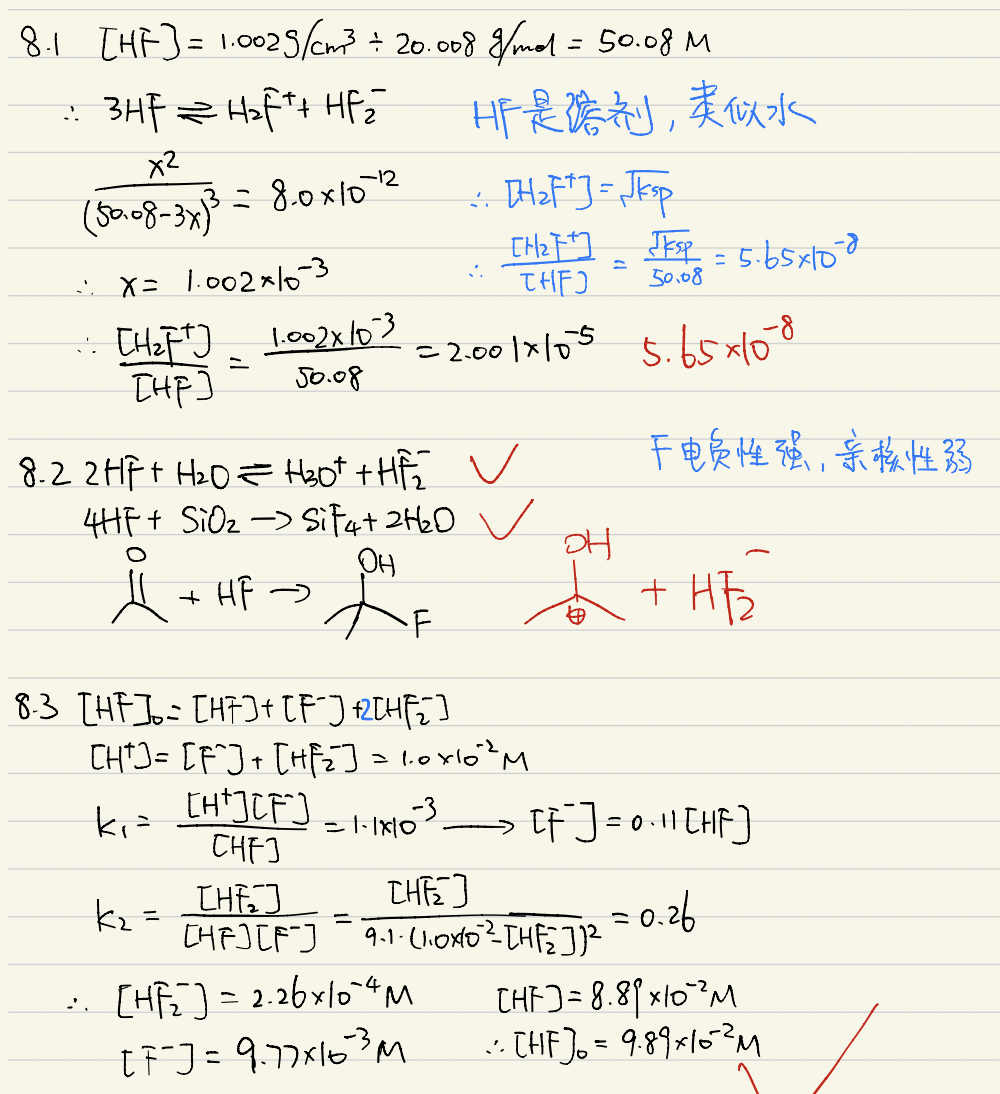 8.1 [HF] = 1.002g/cm³ ÷ 20.008 g/mol = 50.08 M
∴ 3HF ⇌ H₂F⁺ + HF₂⁻ HF是溶剂，类似水
x²/(50.08-3x)³ = 8.0×10⁻¹² ∴ [H₂F⁺] = √Ksp
∴ x = 1.002×10⁻³ ∴ [H₂F⁺]/[HF] = √Ksp/50.08 = 5.65×10⁻⁸
∴ [H₂F⁺]/[HF] = 1.002×10⁻³/50.08 = 2.001×10⁻⁵ 5.65×10⁻⁸
F电负性强，亲核性弱
8.2 2HF + H₂O ⇌ H₃O⁺ + HF₂⁻ ✓
4HF + SiO₂ → SiF₄ + 2H₂O ✓
O + HF → OH F OH ⊕ + HF₂⁻
8.3 [HF]₀ = [HF] + [F⁻] + 2[HF₂⁻]
[H⁺] = [F⁻] + [HF₂⁻] = 1.0×10⁻² M
K₁ = [H⁺][F⁻]/[HF] = 1.1×10⁻³ → [F⁻] = 0.11[HF]
K₂ = [HF₂⁻]/[HF][F⁻] = [HF₂⁻]/9.1·(1.0×10⁻²-[HF₂⁻])² = 0.26
∴ [HF₂⁻] = 2.26×10⁻⁴ M [HF] = 8.89×10⁻² M
[F⁻] = 9.77×10⁻³ M ∴ [HF]₀ = 9.89×10⁻² M ✓